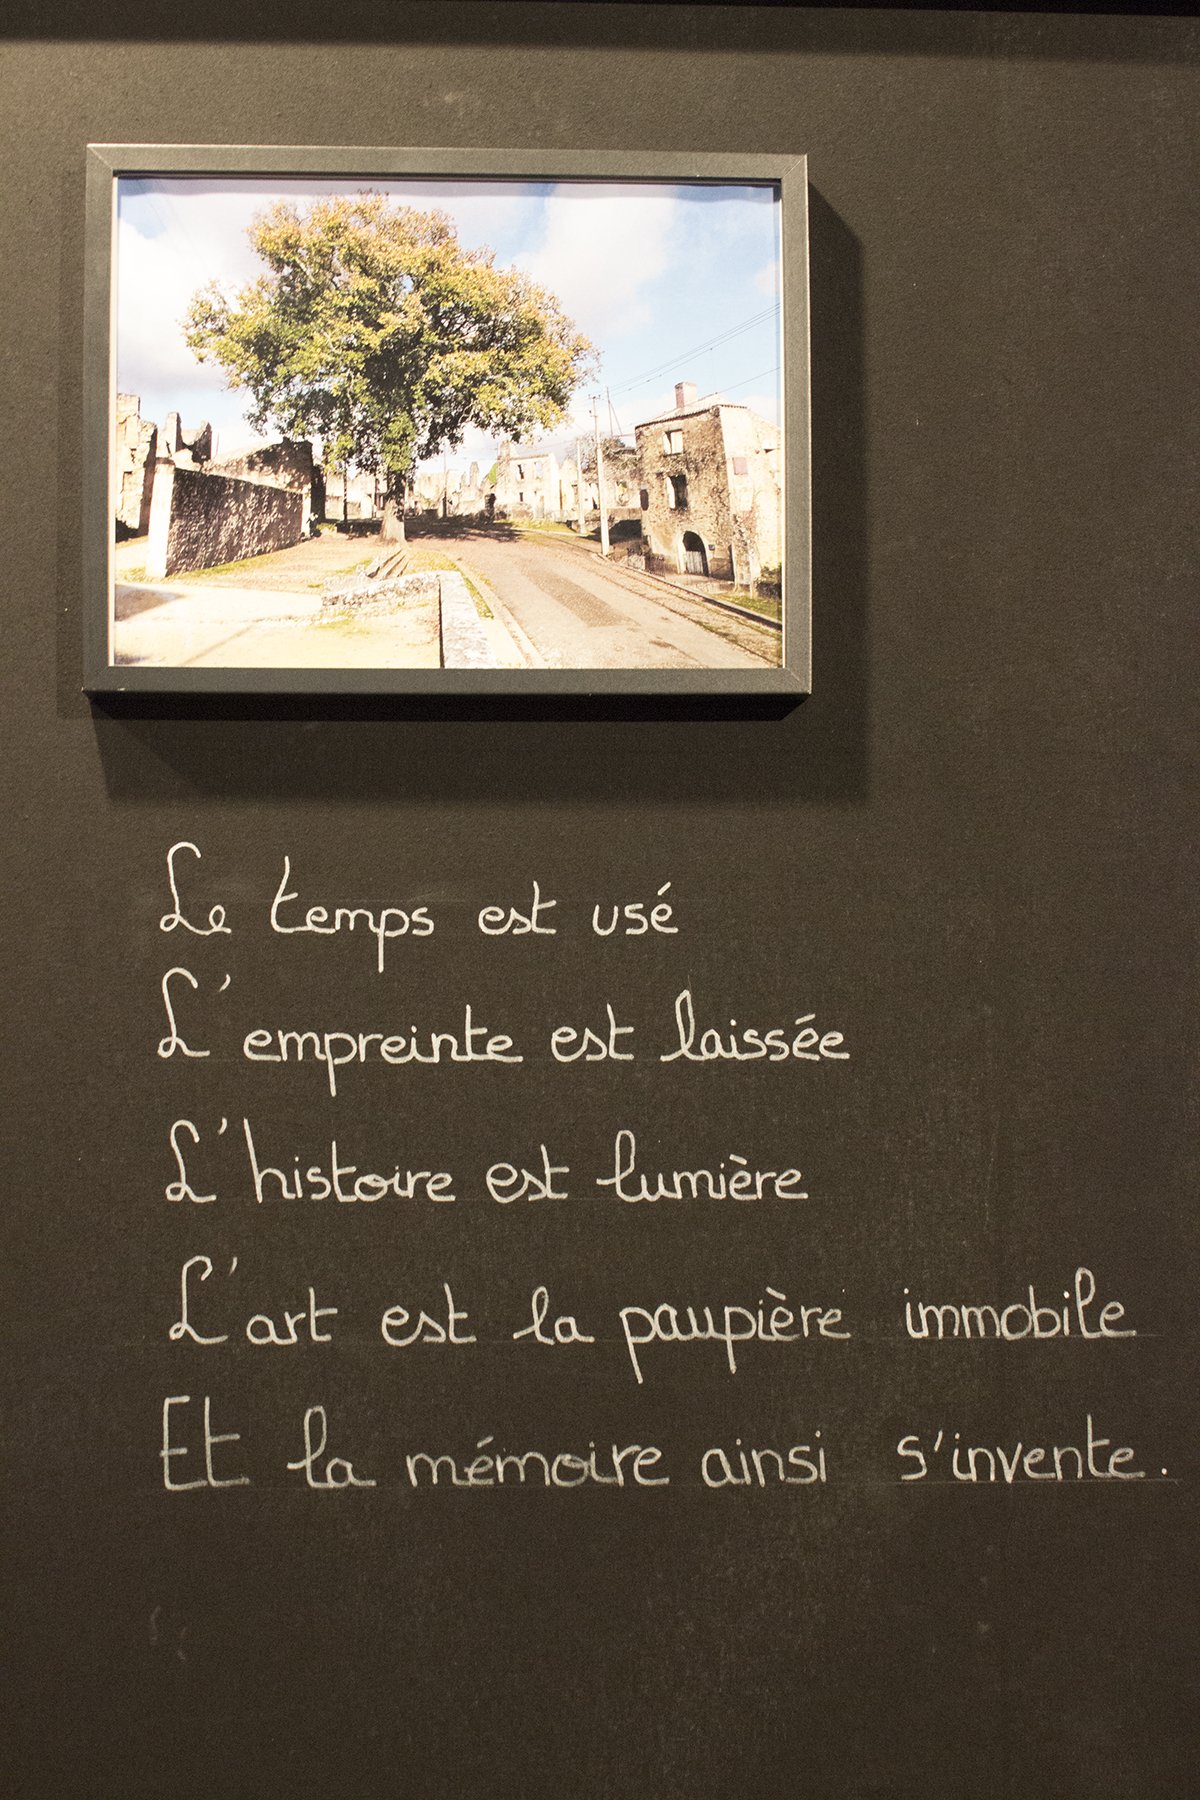 Le temps est usé
L'empreinte est laissée
L'histoire est lumière
L'art est la paupière immobile
Et la mémoire ainsi s'invente.